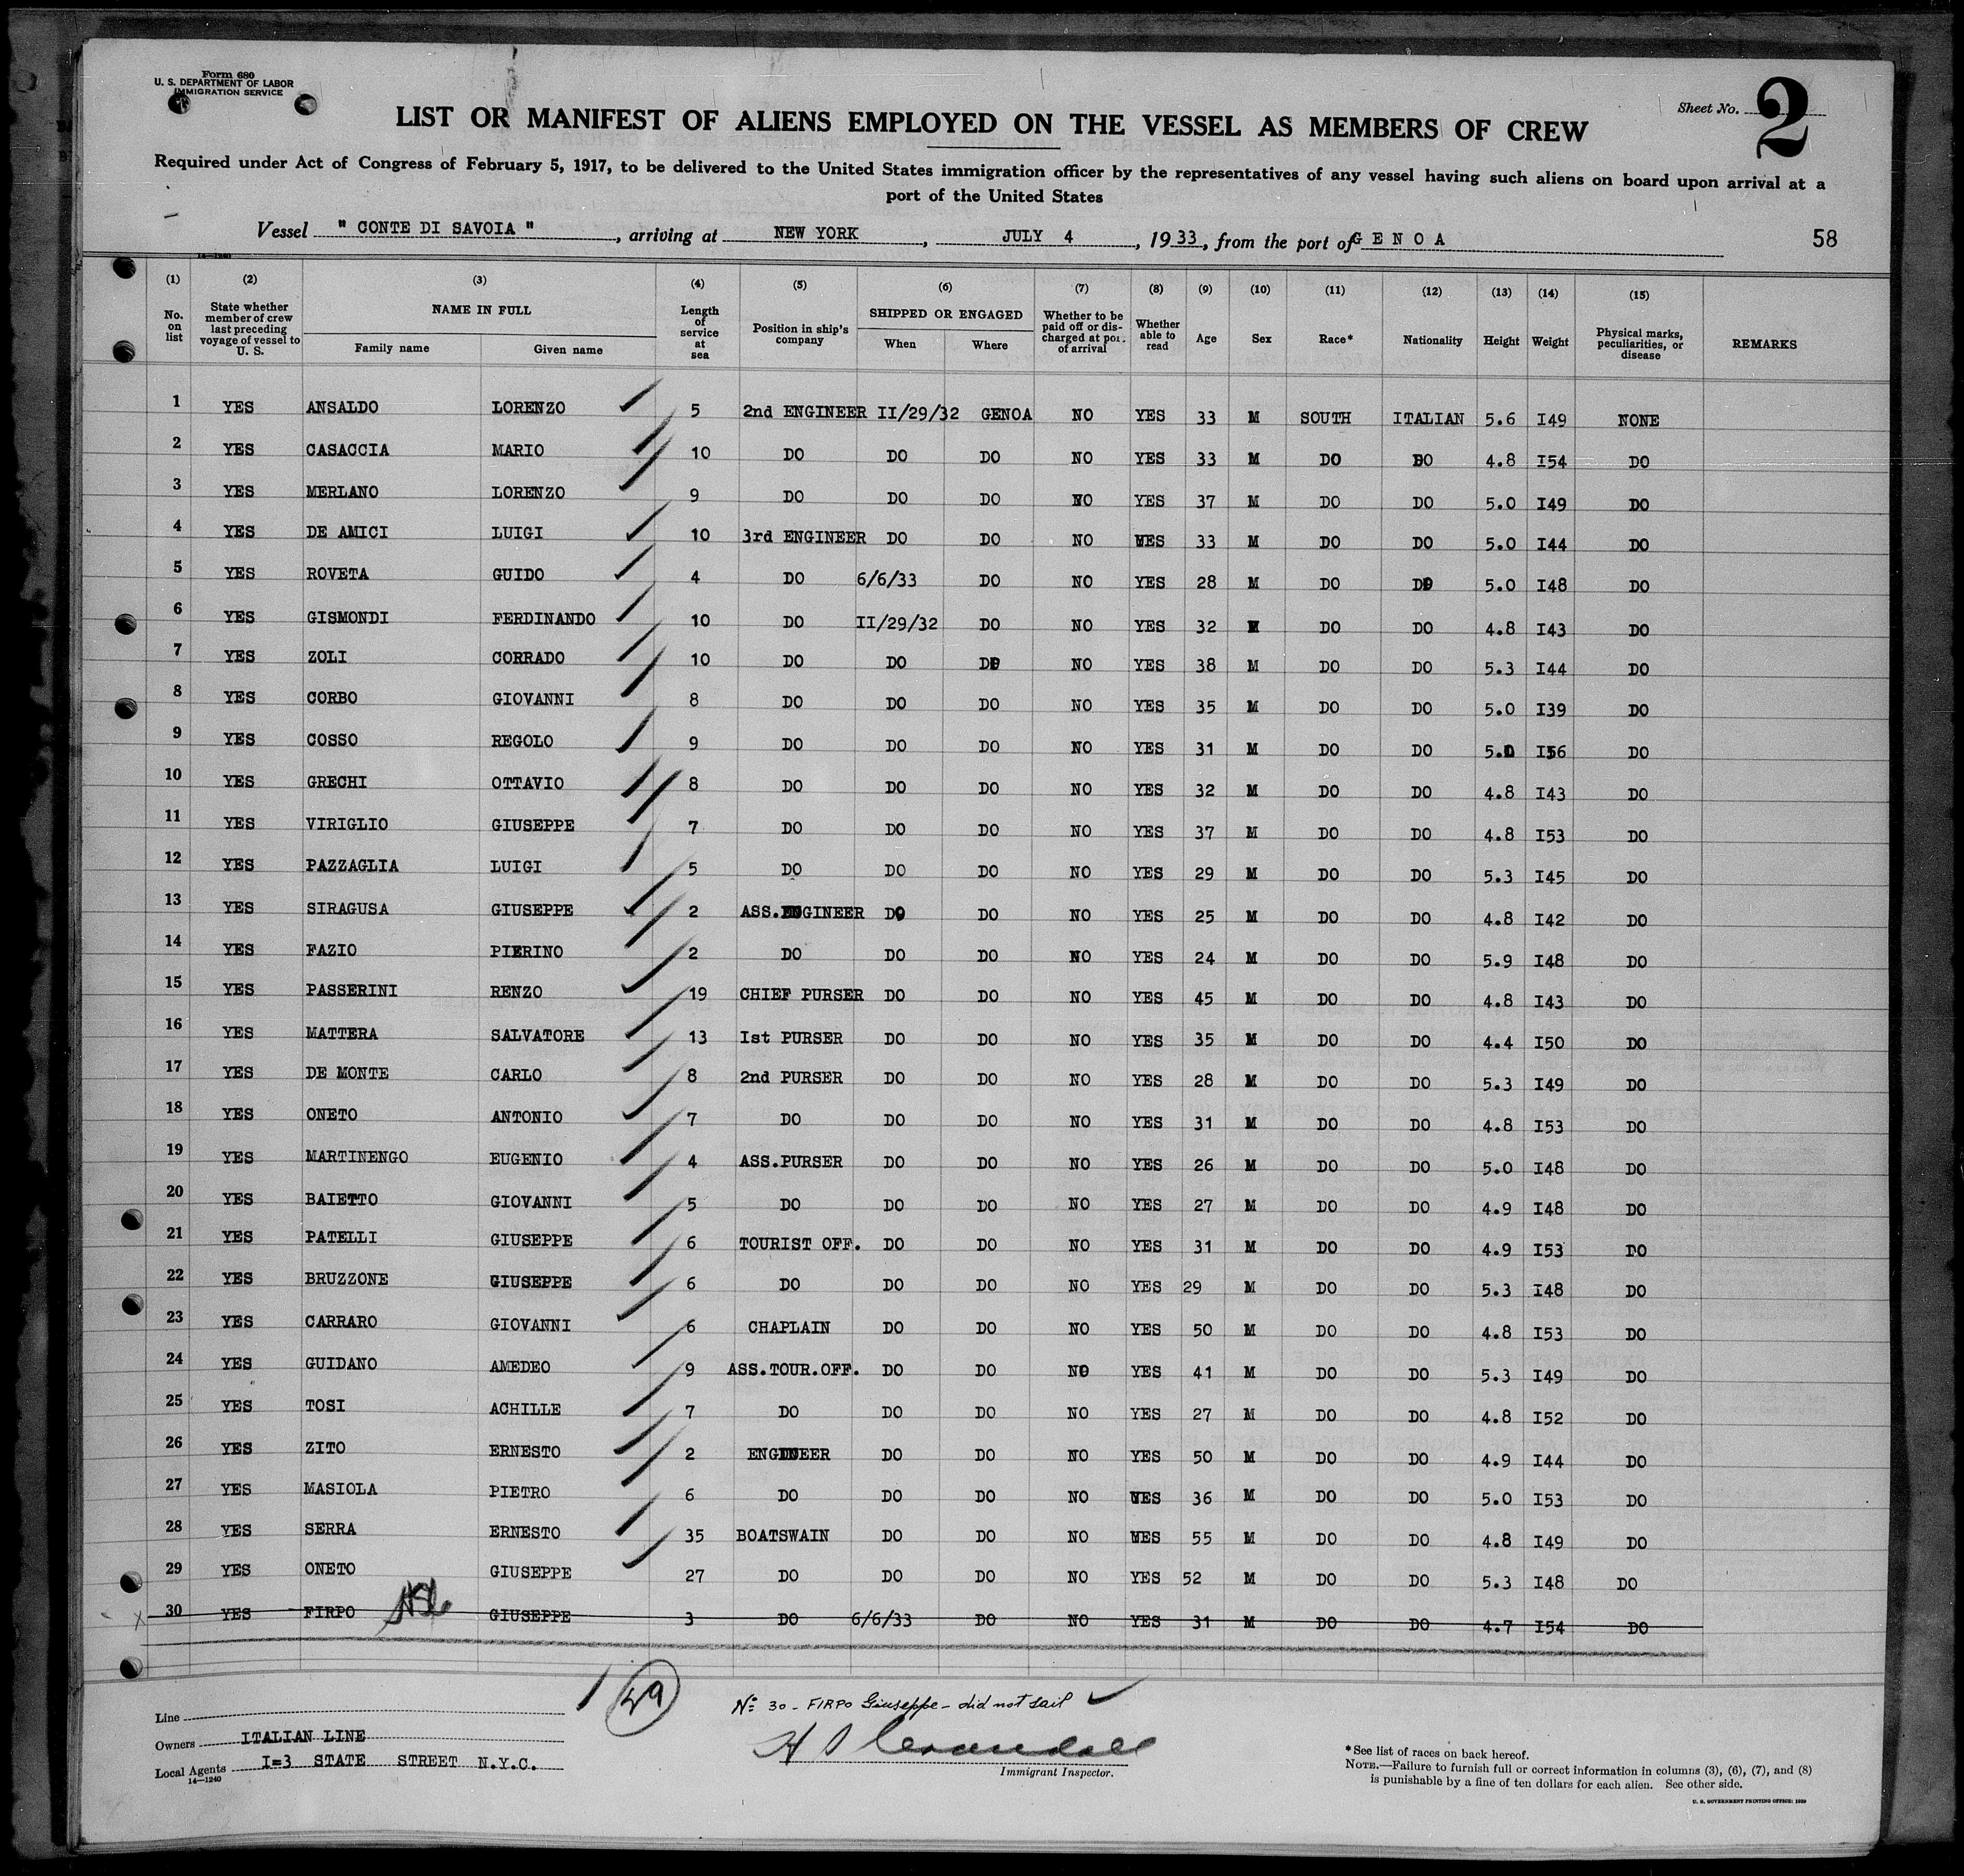 Form 680
U. S. DEPARTMENT OF LABOR
IMMIGRATION SERVICE
Sheet No. 2
LIST OR MANIFEST OF ALIENS EMPLOYED ON THE VESSEL AS MEMBERS OF CREW
Required under Act of Congress of February 5, 1917, to be delivered to the United States immigration officer by the representatives of any vessel having such aliens on board upon arrival at a
port of the United States
Vessel " CONTE DI SAVOIA ", arriving at NEW YORK, JULY 4, 1933, from the port of G E N O A 58
14—1240
(1) (2) (3) (4) (5) (6) (7) (8) (9) (10) (11) (12) (13) (14) (15)
No. on list State whether member of crew last preceding voyage of vessel to U. S. NAME IN FULL Family name Given name Length of service at sea Position in ship's company SHIPPED OR ENGAGED When Where Whether to be paid off or discharged at port of arrival Whether able to read Age Sex Race* Nationality Height Weight Physical marks, peculiarities, or disease REMARKS
1 YES ANSALDO LORENZO 5 2nd ENGINEER II/29/32 GENOA NO YES 33 M SOUTH ITALIAN 5.6 I49 NONE
2 YES CASACCIA MARIO 10 DO DO DO NO YES 33 M DO DO 4.8 I54 DO
3 YES MERLANO LORENZO 9 DO DO DO NO YES 37 M DO DO 5.0 I49 DO
4 YES DE AMICI LUIGI 10 3rd ENGINEER DO DO NO YES 33 M DO DO 5.0 I44 DO
5 YES ROVETA GUIDO 4 DO 6/6/33 DO NO YES 28 M DO DO 5.0 I48 DO
6 YES GISMONDI FERDINANDO 10 DO II/29/32 DO NO YES 32 M DO DO 4.8 I43 DO
7 YES ZOLI CORRADO 10 DO DO DO NO YES 38 M DO DO 5.3 I44 DO
8 YES CORBO GIOVANNI 8 DO DO DO NO YES 35 M DO DO 5.0 I39 DO
9 YES COSSO REGOLO 9 DO DO DO NO YES 31 M DO DO 5.0 I56 DO
10 YES GRECHI OTTAVIO 8 DO DO DO NO YES 32 M DO DO 4.8 I43 DO
11 YES VIRIGLIO GIUSEPPE 7 DO DO DO NO YES 37 M DO DO 4.8 I53 DO
12 YES PAZZAGLIA LUIGI 5 DO DO DO NO YES 29 M DO DO 5.3 I45 DO
13 YES SIRAGUSA GIUSEPPE 2 ASS.ENGINEER DO DO NO YES 25 M DO DO 4.8 I42 DO
14 YES FAZIO PIERINO 2 DO DO DO NO YES 24 M DO DO 5.9 I48 DO
15 YES PASSERINI RENZO 19 CHIEF PURSER DO DO NO YES 45 M DO DO 4.8 I43 DO
16 YES MATTERA SALVATORE 13 Ist PURSER DO DO NO YES 35 M DO DO 4.4 I50 DO
17 YES DE MONTE CARLO 8 2nd PURSER DO DO NO YES 28 M DO DO 5.3 I49 DO
18 YES ONETO ANTONIO 7 DO DO DO NO YES 31 M DO DO 4.8 I53 DO
19 YES MARTINENGO EUGENIO 4 ASS.PURSER DO DO NO YES 26 M DO DO 5.0 I48 DO
20 YES BAIETTO GIOVANNI 5 DO DO DO NO YES 27 M DO DO 4.9 I48 DO
21 YES PATELLI GIUSEPPE 6 TOURIST OFF. DO DO NO YES 31 M DO DO 4.9 I53 DO
22 YES BRUZZONE GIUSEPPE 6 DO DO DO NO YES 29 M DO DO 5.3 I48 DO
23 YES CARRARO GIOVANNI 6 CHAPLAIN DO DO NO YES 50 M DO DO 4.8 I53 DO
24 YES GUIDANO AMEDEO 9 ASS.TOUR.OFF. DO DO NO YES 41 M DO DO 5.3 I49 DO
25 YES TOSI ACHILLE 7 DO DO DO NO YES 27 M DO DO 4.8 I52 DO
26 YES ZITO ERNESTO 2 ENGINEER DO DO NO YES 50 M DO DO 4.9 I44 DO
27 YES MASIOLA PIETRO 6 DO DO DO NO YES 36 M DO DO 5.0 I53 DO
28 YES SERRA ERNESTO 35 BOATSWAIN DO DO NO YES 55 M DO DO 4.8 I49 DO
29 YES ONETO GIUSEPPE 27 DO DO DO NO YES 52 M DO DO 5.3 I48 DO
30 YES FIRPO GIUSEPPE 3 DO 6/6/33 DO NO YES 31 M DO DO 4.7 I54 DO
Line
Owners ITALIAN LINE
Local Agents I=3 STATE STREET N.Y.C.
14—1240
29
No 30 - FIRPO Giuseppe - did not sail
Immigrant Inspector.
* See list of races on back hereof.
NOTE.—Failure to furnish full or correct information in columns (3), (6), (7), and (8)
is punishable by a fine of ten dollars for each alien. See other side.
U. S. GOVERNMENT PRINTING OFFICE: 1929